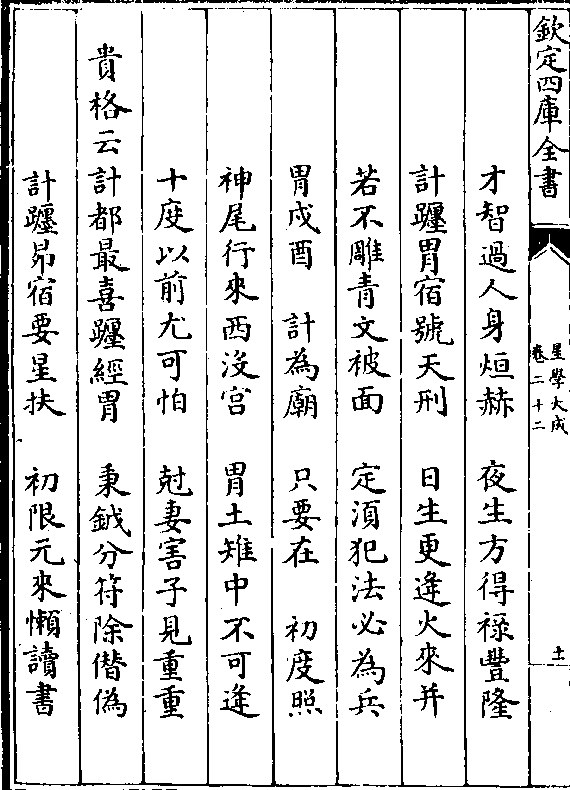 欽定四庫全書
星學大成
卷二十二
十一
才智過人身烜赫　夜生方得祿豐隆
計躔胃宿號天刑　日生更逢火來并
若不雕青文被面　定須犯法必為兵
胃戍酉　計為廟　只要在　初度照
神尾行來西没宫　胃土雉中不可逢
十度以前尤可怕　尅妻害子見重重
貴格云計都最喜躔經胃　秉鉞分符除僭偽
計躔昴宿要星扶　初限元來懶讀書